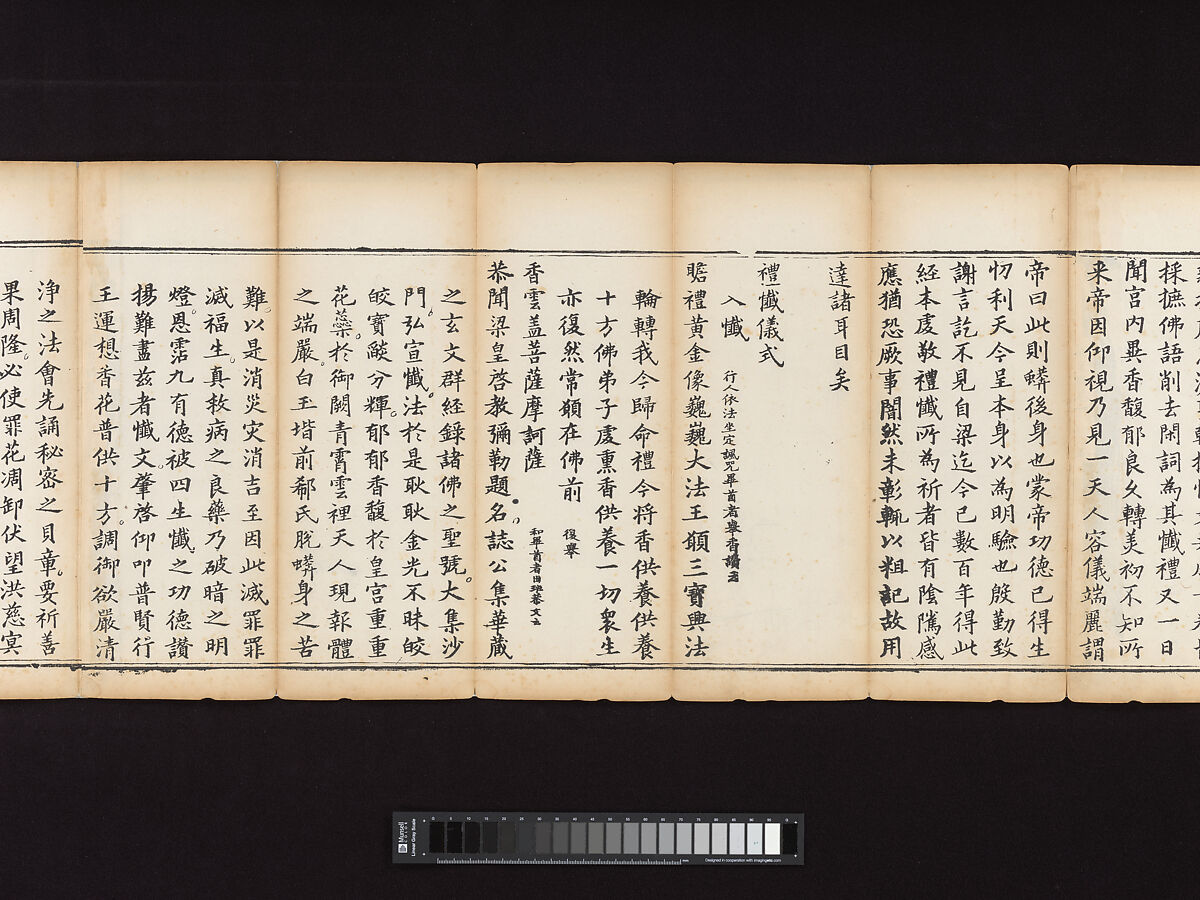 採摭佛語削去閑詞為其懺禮又一日
聞宮内異香馥郁良久轉美初不知所
来帝因仰視乃見一天人容儀端麗謂
帝曰此則蟒後身也蒙帝功德已得生
忉利天今呈本身以為明驗也慇勤致
謝言訖不見自梁迄今已數百年得此
經本虔敬禮懺所為祈者皆有陰隲感
應猶恐厥事闇然未彰輒以粗記故用
達諸耳目矣
禮懺儀式
入懺 行人依法坐定諷咒畢首者舉香讚云
瞻禮黃金像巍巍大法王願三寶興法
輪轉我今歸命禮今将香供養供養
十方佛弟子虔熏香供養一切衆生
亦復然常願在佛前 復舉
香雲盖菩薩摩訶薩 和畢首者出班恭文云
恭聞梁皇啓教彌勒題名誌公集華蔵
之玄文群經錄諸佛之聖號大集沙
門弘宣懺法於是耿耿金光不昧皎
皎寳燄分輝郁郁香馥於皇宮重重
花蘂於御闕青霄雲裡天人現報體
之端嚴白玉堦前郗氏脫蟒身之苦
難以是消災灾消吉至因此滅罪罪
滅福生真救病之良藥乃破暗之明
燈恩霑九有德被四生懺之功德讃
揚難盡兹者懺文肇啓仰叩普賢行
王運想香花普供十方調御欲嚴清
淨之法會先誦秘密之貝章要祈善
果周隆必使罪花凋卸伏望洪慈㝠
Munsell
COLOR
Linear Gray Scale
0 5 10 15 20 25 30 35 40 45 50 55 60 65 70 75 80 85 90 95
mm
Designed in cooperation with imagingetc.com